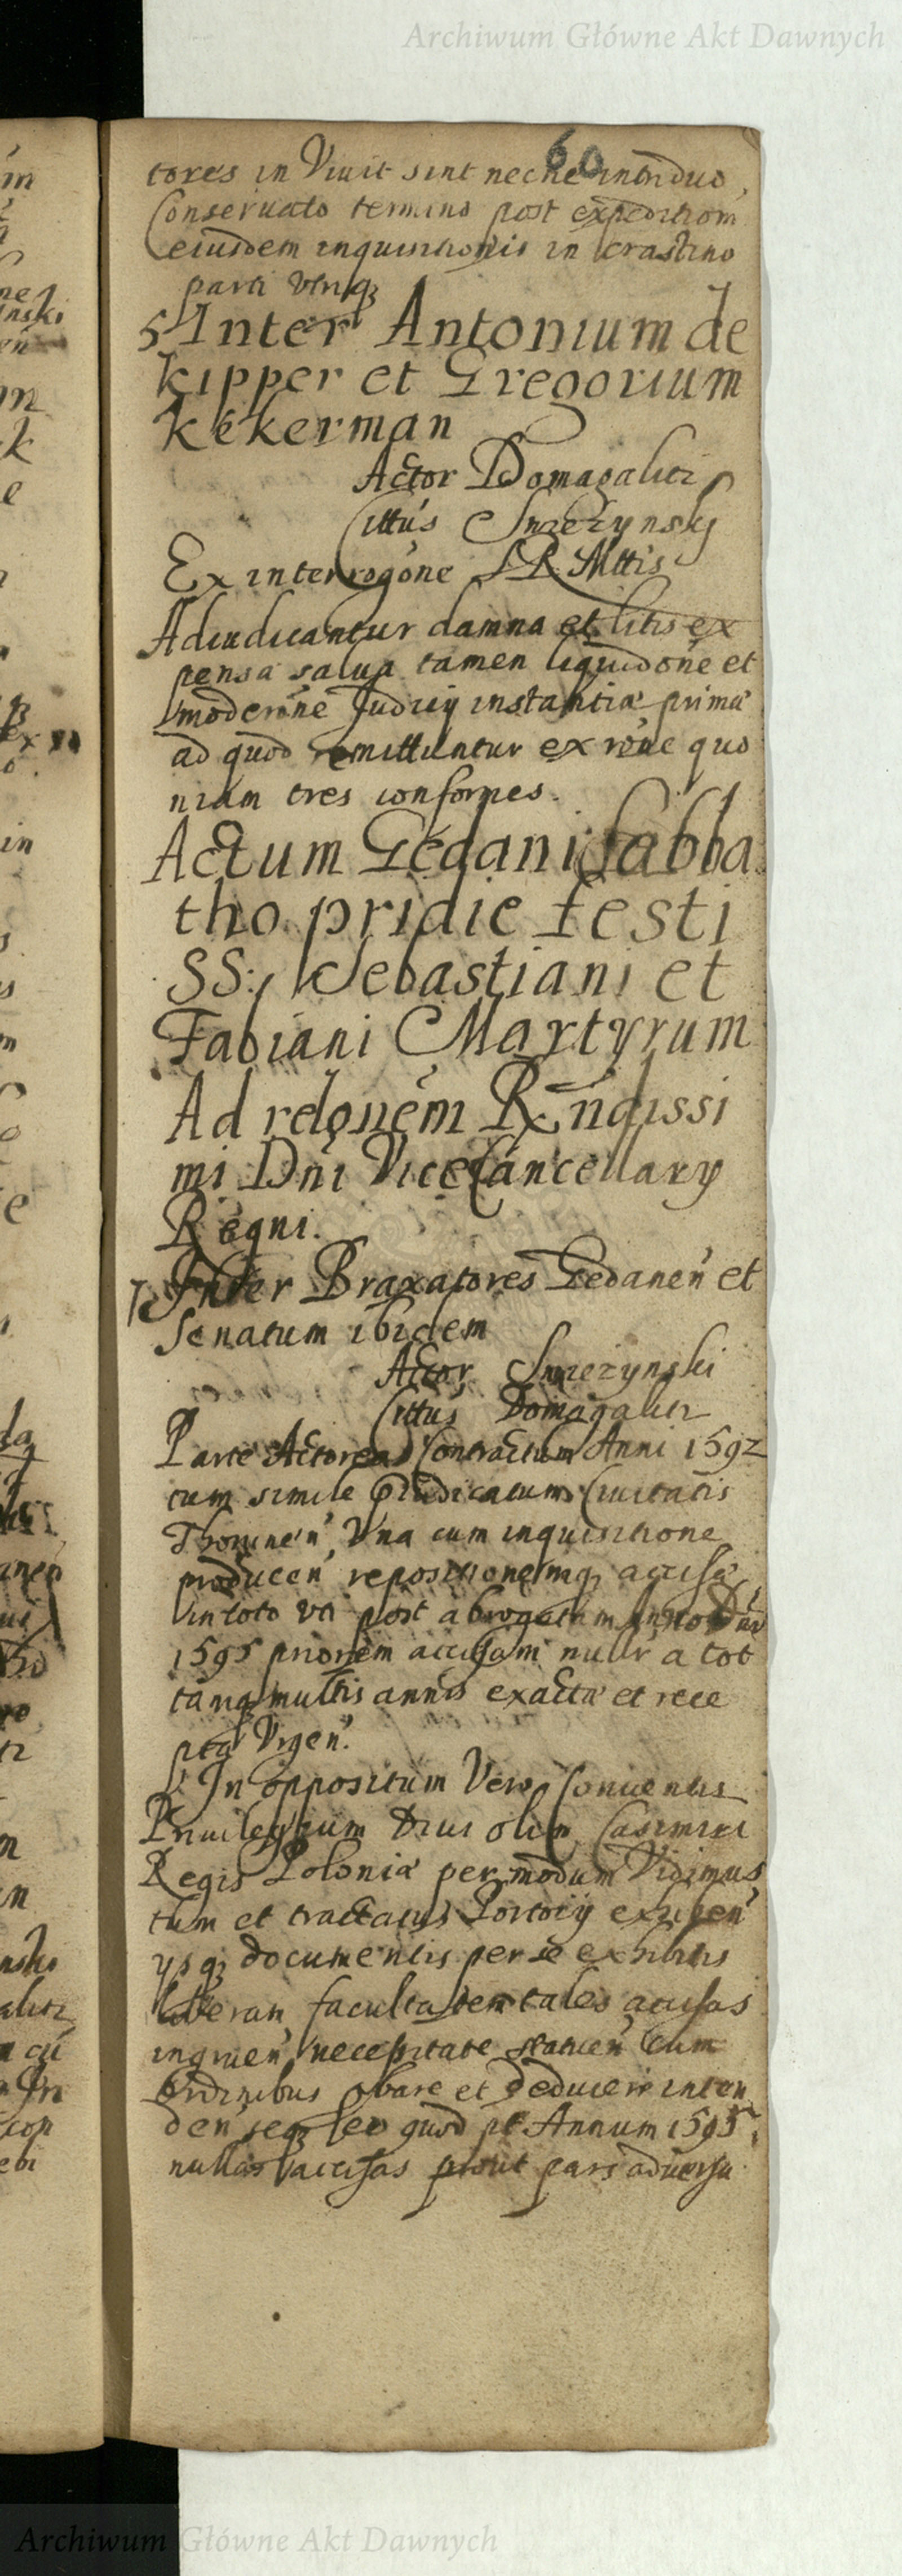 Archiwum Główne Akt Dawnych
60
tores in Viuit sint necne intriduo
Conseruato termino post expeditiom
eiusdem inquisitionis in Crastino
parti vtriq3
5 Inter Antonium de
kipper et Gregorium
kekerman
Actor Domagalicz
Cittus
Ex interrogone S R Mttis
Adiudicantur damna et litis ex
pensa salua tamen liquidone et
moderone Judicij instantiæ primæ
ad quod remittuntur ex rone quo
niam tres conformes.
Actum Gedani Sabba
tho pridie festi
SS: Sebastiani et
Fabiani Martyrum
Ad relonem Rndissi
mi Dni ViceCancellary
Regni.
Inter Braxatores Gedanen et
Senatum ibidem
Actor
Cittus Domagalicz
Parte Actorea Contractum Anni 1592
tum simile Ciuitatis
Thorunen, Vna cum inquisitione
producen repositionemq3 accisæ
in toto vti post abrogatam Anno
1595 priorem accisam a tot
tamq multis annis exactæ et rece
ptæ Vrgen.
In oppositum Vero Conuentus
Priuilegium Diui olim Casimiri
Regis Poloniæ per modum Vidimus
tum et tractatus Portorij exhiben
ijsq3 documentis per se exhibitis
liberam facultatem tales accisas
ingruen necessitate statuen Cum
Ordinibus pbare et deducere inten
den seq3 eo quod pt Annum 1595
nullas accisas prout pars aduersa
Archiwum Główne Akt Dawnych